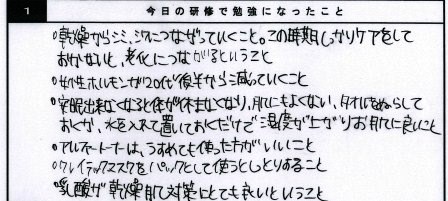 1 今日の研修で勉強になったこと
・乾燥からシミ、シワにつながっていくこと。この時期しっかりケアをして
おかないと、老化につながるということ
・女性ホルモンが20代後半から減っていくこと
・安眠出来なくなると体が休まなくなり、肌にもよくない、タオルをぬらして
おくか、水を入れて置いておくだけで湿度が上がりお肌に良いこと
・アルファートナーは、うすめても使った方がいいこと
・クレイテックマスクをパックとして使うとしっとりすること
・乳酸が乾燥肌対策にとても良いということ